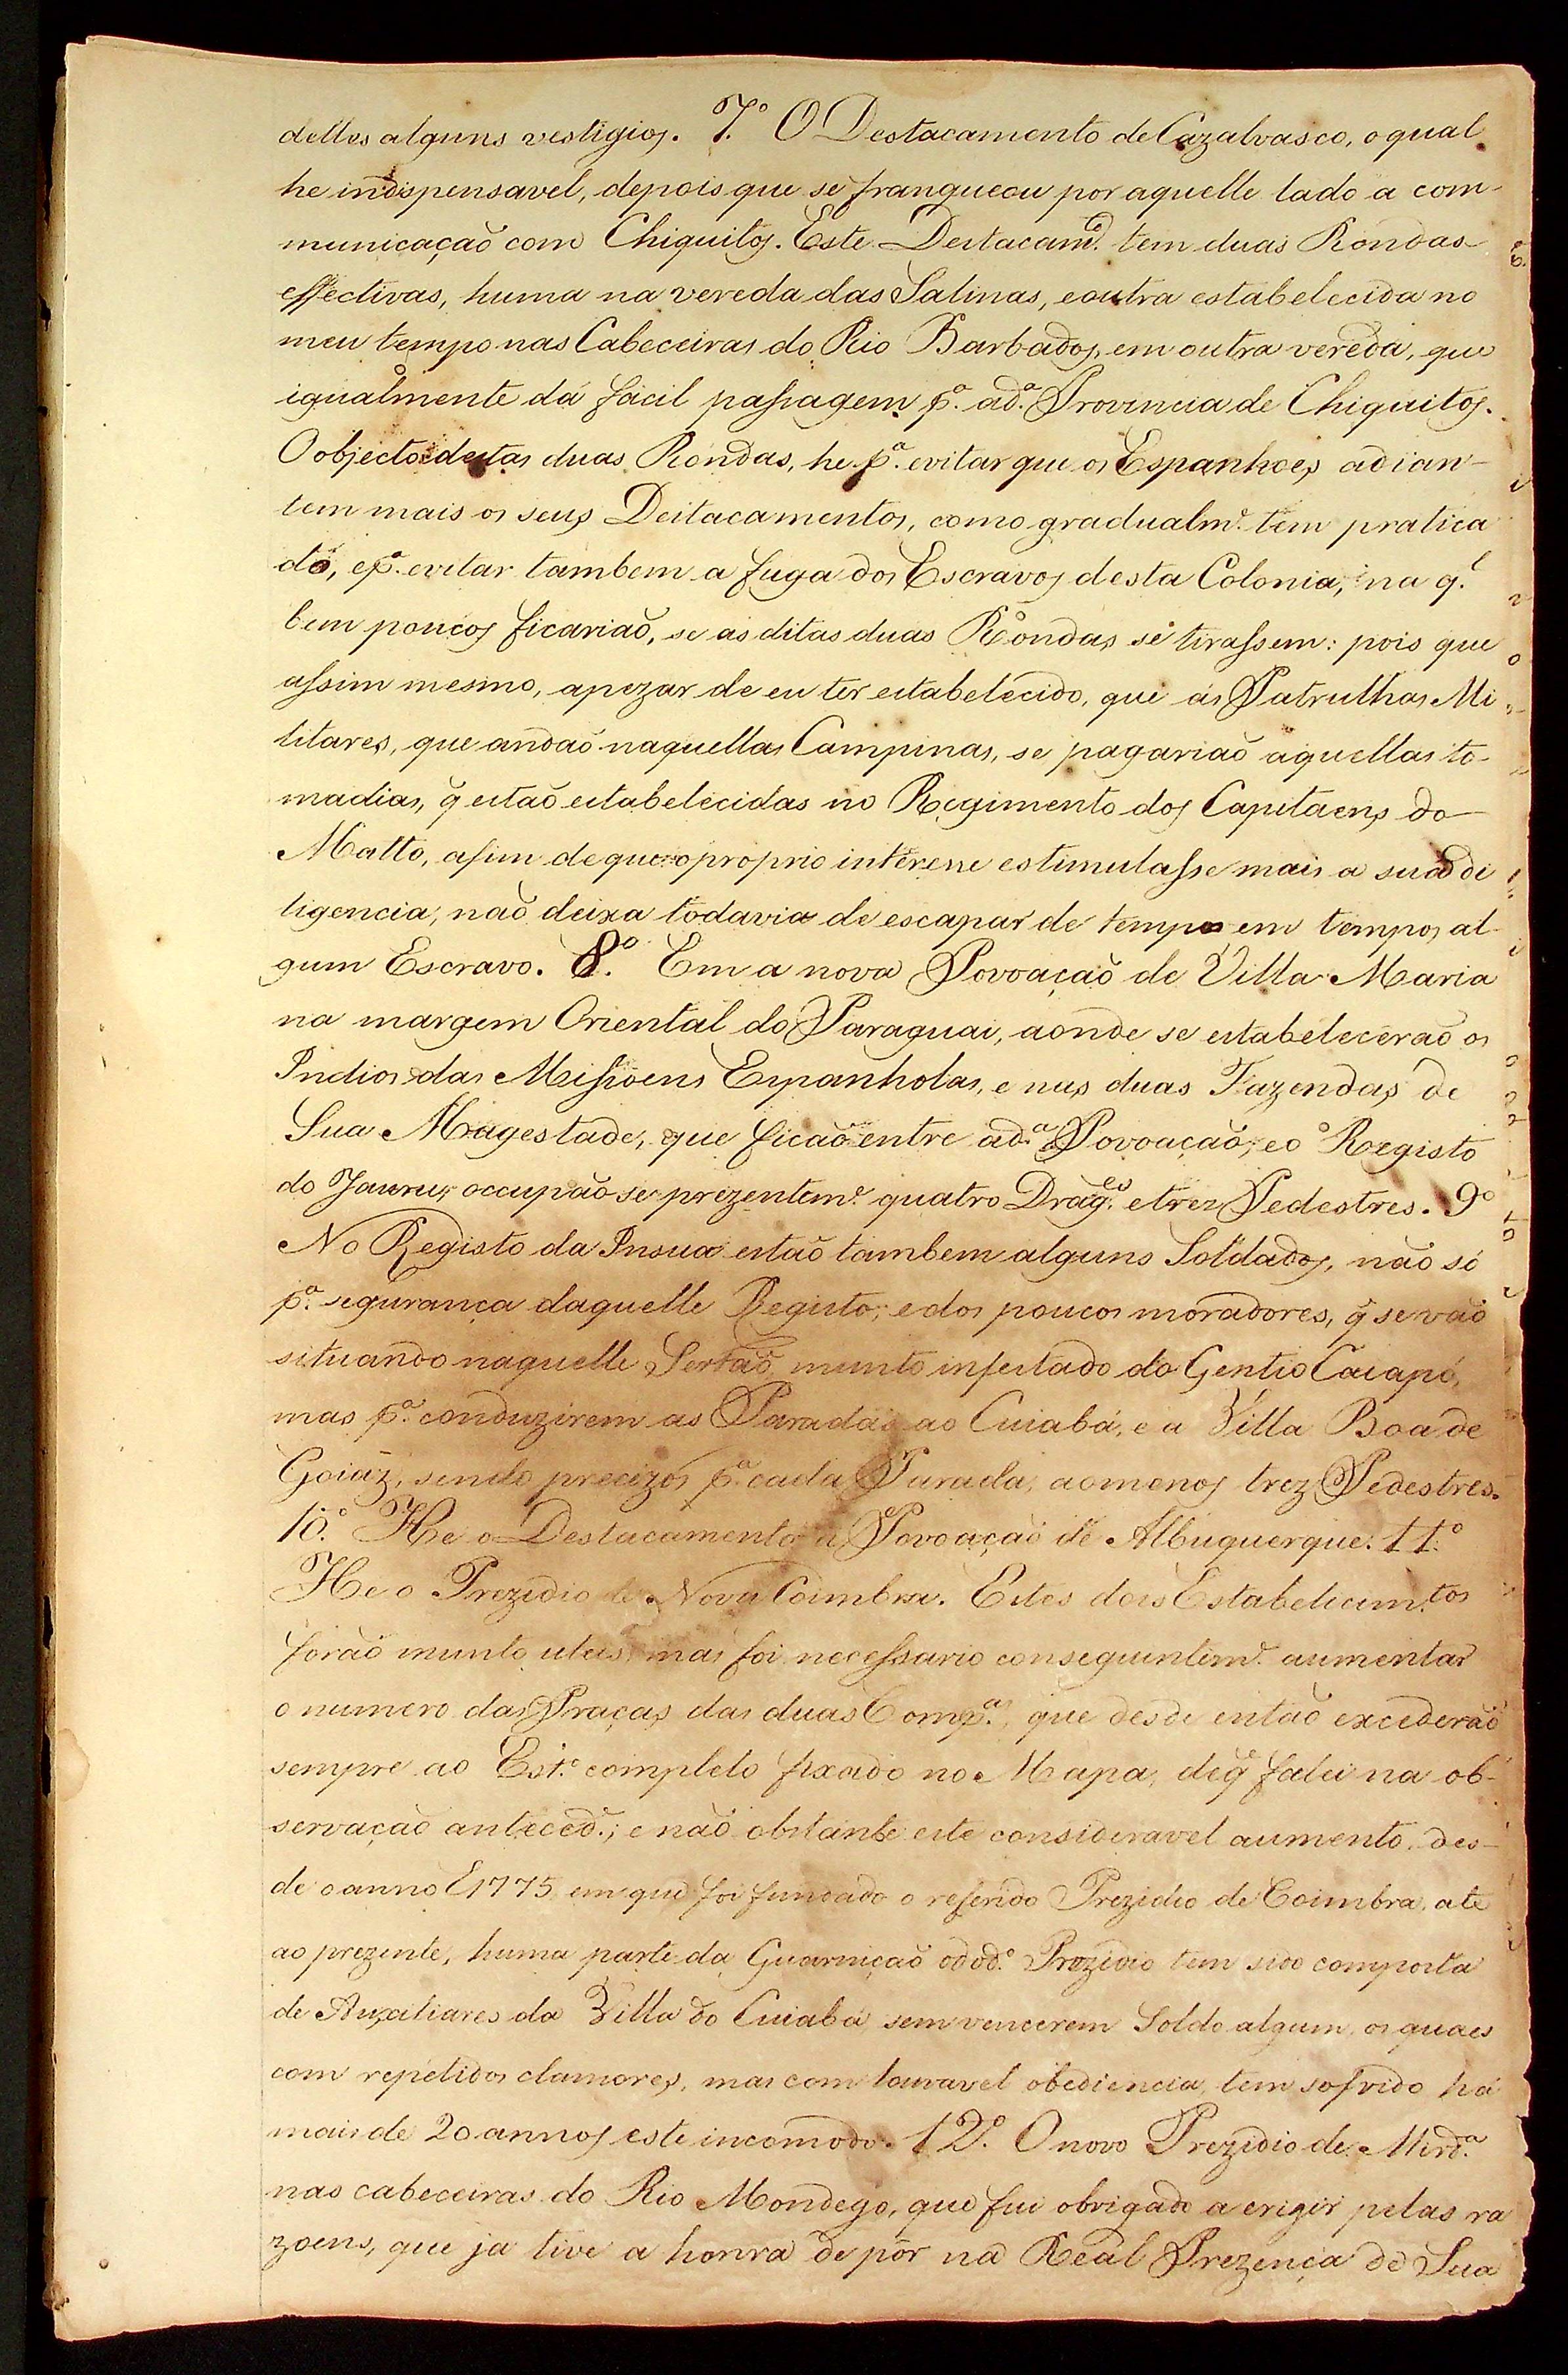 delles alguns vestigios. 7.º O Destacamento de Cazalvasco, o qual
he indispensavel, depois que se franqueou por aquelle lado a com-
municação com Chiquitos. Este Destacam.to tem duas Rondas
effectivas, huma na vereda das Salinas, e outra estabelecida no
meu tempo nas Cabeceiras do Rio Barbados, em outra vereda, que
igualmente dá facil passagem p.ª a d.ª Provincia de Chiquitos.
O objecto destas duas Rondas, he p.ª evitar que os Espanhoes adian-
tem mais os seus Destacamentos, como gradualm.e tem pratica
do, e p.ª evitar tambem a fuga dos Escravos desta Colonia, na q.l
bem poucos ficarião, se as ditas duas Rondas se tirassem: pois que
assim mesmo, apezar de eu ter estabelecido, que ás Patrulhas Mi
litares, que andão naquellas Campinas, se pagarião aquellas to-
madias, q̃ estão estabelecidas no Regimento dos Capitaens do
Matto, afim de que o proprio interesse estimulasse mais a sua di
ligencia, não deixa todavia de escapar de tempos em tempos al-
gum Escravo. 8.º Em a nova Povoação de Villa Maria
na margem Oriental do Paraguai, aonde se estabelecerão os
Indios das Missoens Espanholas, e nas duas Fazendas de
Sua Magestade, que ficão entre a d.ª Povoação, e o Registo
do Jauru, occupão se prezentem.e quatro Drag.es e trez Pedestres. 9º
No Registo da Insua estão tambem alguns Soldados, não só
p.ª segurança daquelle Registo, e dos poucos moradores, q̃ se vão
situando naquelle Sertão munto infestado do Gentio Caiapó,
mas p.ª conduzirem as Paradas ao Cuiabá, e a Villa Boa de
Goiáz, sendo precizos p.ª cada Parada, ao menos trez Pedestres.
10.º He o Destacamento a Povoação de Albuquerque. 11.º
He o Prezidio de Nova Coimbra. Estes dois Estabelecim.tos
forão munto uteis, mas foi necessario conseguintem.e aumentar
o numero das Praças das duas Comp.as, que desde então excederão
sempre ao Est.º completo fixado no Mapa, de q̃ falei na ob-
servação anteced.e; e não obstante este consideravel aumento, des-
de o anno 1775 em que foi fundado o referido Prezidio de Coimbra, ate
ao prezente, huma parte da Guarnição do d.º Prezidio tem sido composta
de Auxiliares da Villa do Cuiabá, sem vencerem Soldo algum, os quaes
com repetidos clamores, mas com louvavel obediencia, tem sofrido há
mais de 20 annos este incomodo. 12.º O novo Prezidio de Mird.ª
nas cabeceiras do Rio Mondego, que fui obrigado a erigir pelas ra
zoens, que ja tive a honra de pôr na Real Prezença de Sua